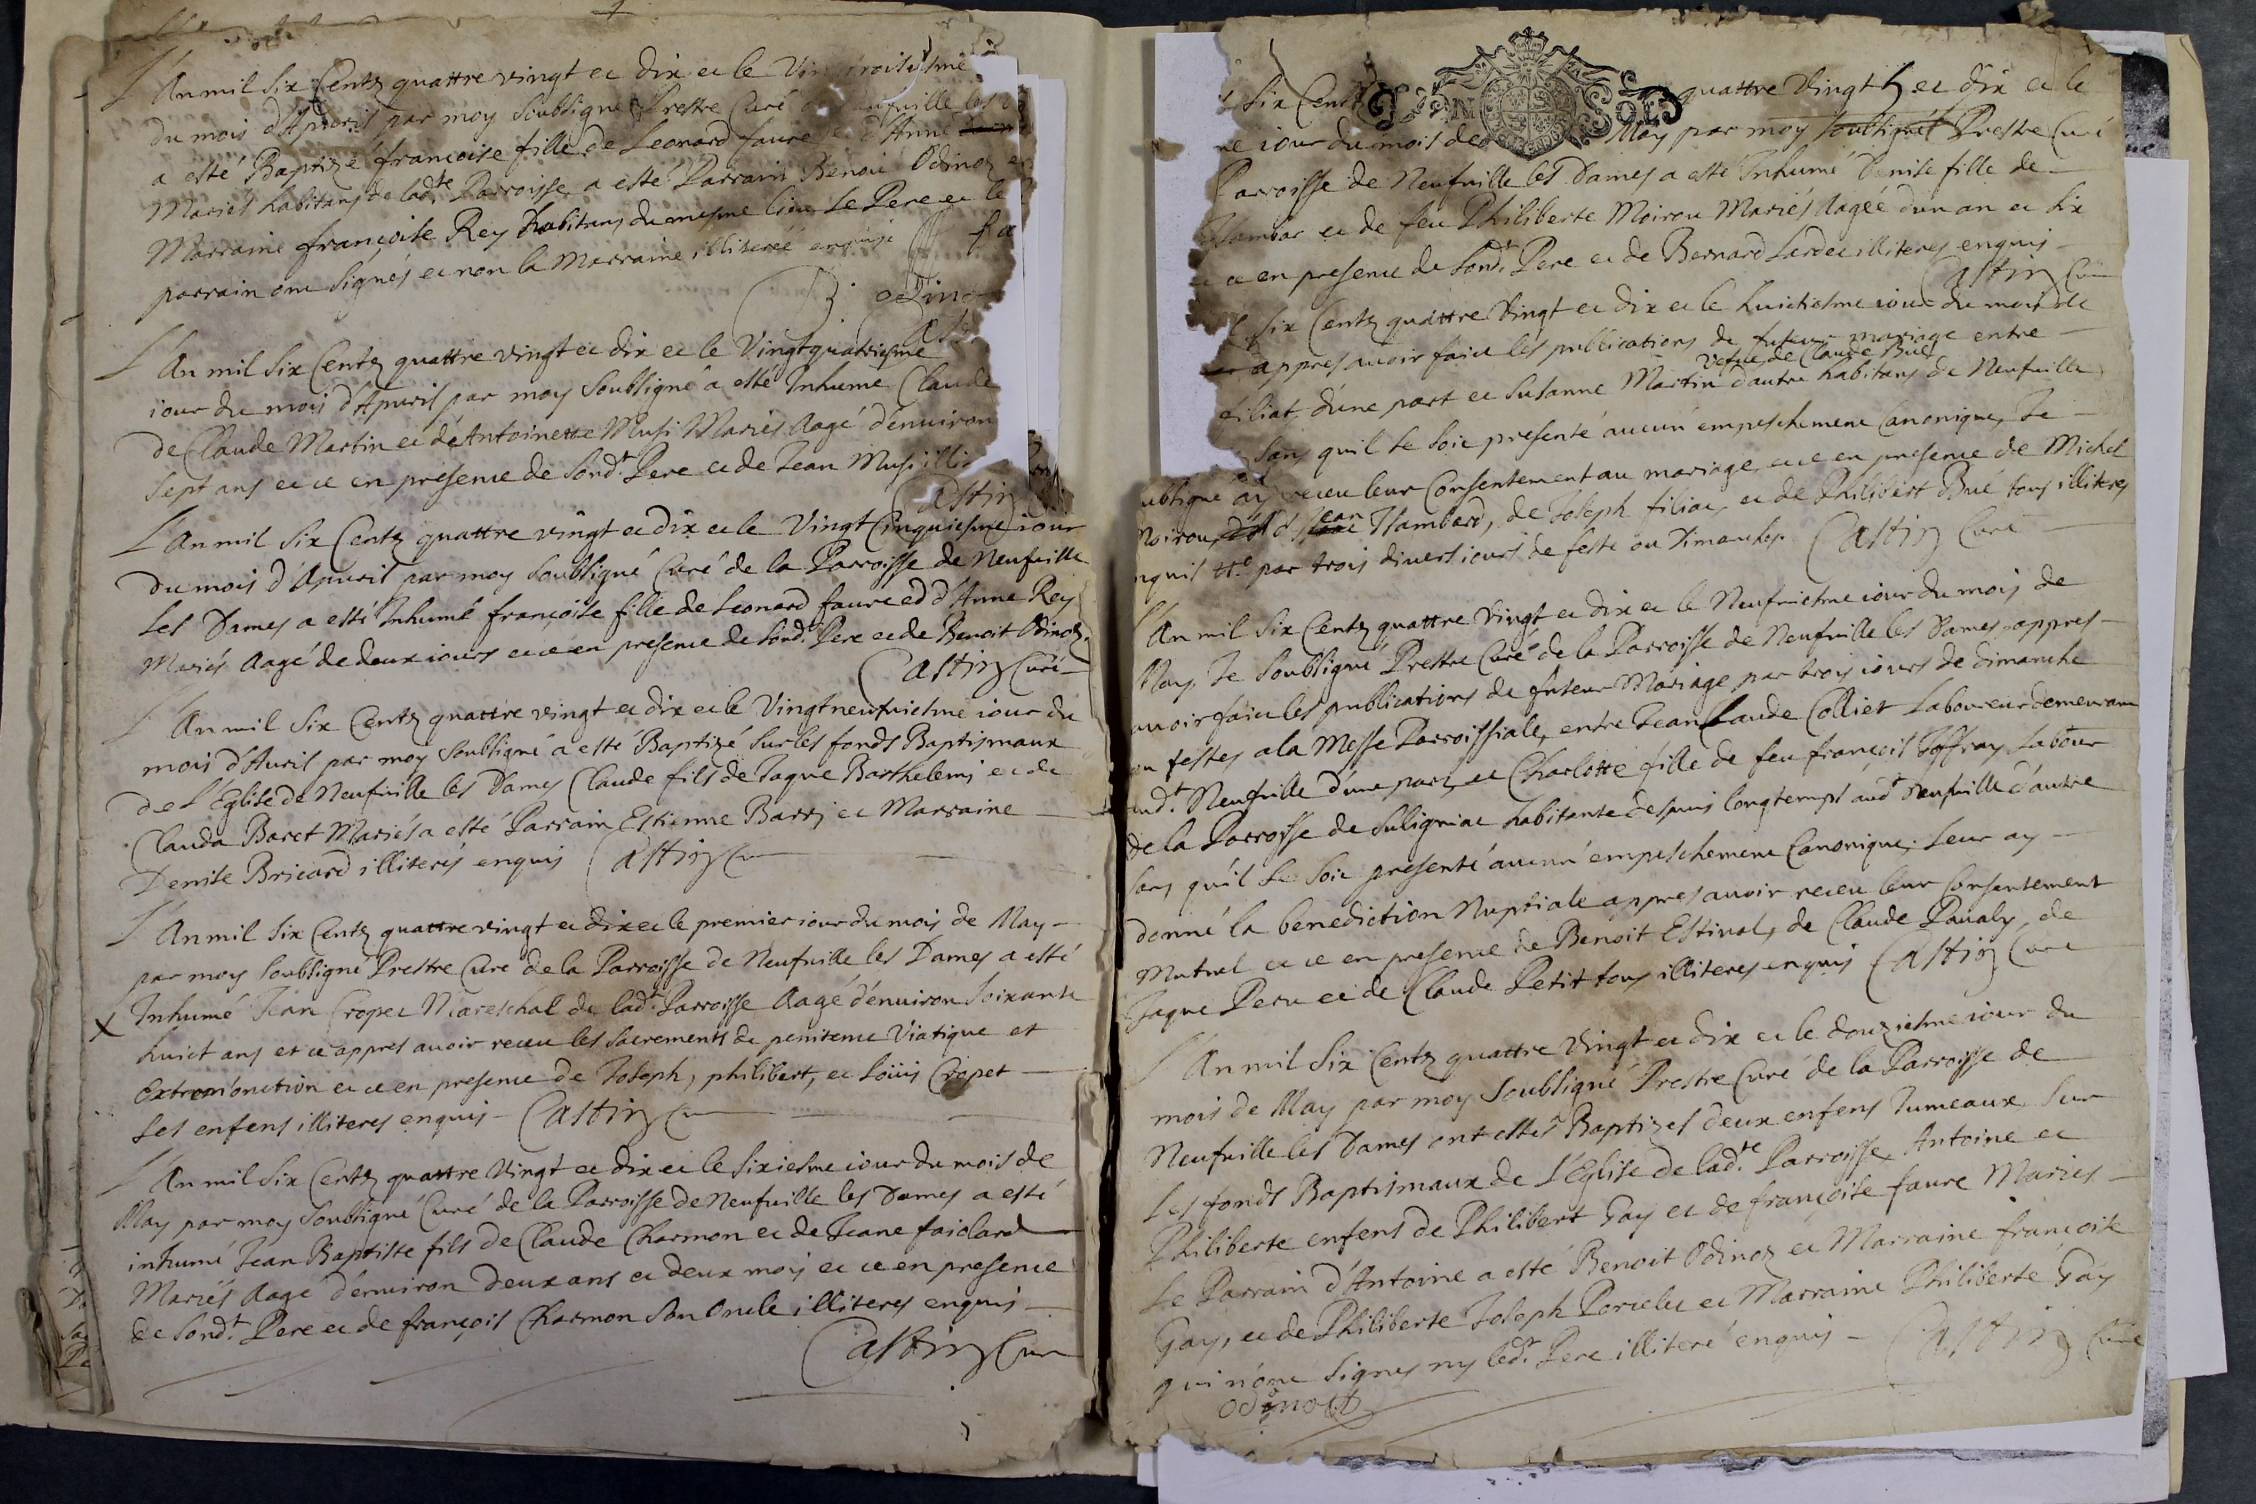 L'An mil Six Centz quattre vingt et dix et le Vingt troisiesme
du mois d'Apvril par moy Soubsigné Prestre Curé de Neufville les
a esté Baptizé françoise fille de Leonard faure et d'Anne
Mariés habitans de lad.te Parroisse a esté Parrain Benoit Odinot et
Marraine françoise Rey habitans du mesme lieu Le Pere et le
parrain ont Signés et non la Marraine illiterée enquise
B. odino
L'An mil Six Centz quattre vingt et dix et le Vingtquatriesme
iour du mois d'Apvril par moy Soubsigné a esté Inhumé Claude
de Claude Martin et de Antoinette Musi Mariés Aagé d'environ
Sept ans et ce en presence de Sond.t Pere et de Jean Musi
Castin
L'An mil Six Centz quattre vingt et dix et le Vingt Cinquiesme iour
Du mois d'Apvril par moy Soubsigné Curé de la Parroisse de Neufville
Les Dames a esté Inhumé françoise fille de Leonard faure et d'Anne Rey
Mariés Aagé de deux iours et ce en presence de Sond.t Pere et de Benoit Odinot
Castin Curé
L'An mil Six Centz quattre vingt et dix et le Vingtneufviesme iour du
mois d'Avril par moy Soubsigné a esté Baptizé Sur les fonds Baptismaux
de L'Eglise de Neufville les Dames Claude fils de Jaque Barthelemi et de
Clauda Baret Mariés a esté Parrain Estienne Barry et Marraine
Denise Bricard illiterés enquis Castin Cur
L'An mil Six Centz quattre vingt et dix et le premier iour du mois de May
par moy Soubsigné Prestre Curé de la Parroisse de Neufville les Dames a esté
X Inhumé Jean Cropet Mareschal de lad.t Parroisse Aagé d'environ Soixante
huict ans et ce appres avoir receu les Sacrements de penitence Viatique et
Extremonction et ce en presence de Joseph, philibert, et Loüis Cropet
Ses enfens illiteres enquis Castin Cur
L'An mil Six Centz quattre Vingt et dix et le Sixiesme iour du mois de
May par moy Soubsigné Curé de la Parroisse de Neufville les Dames a esté
inhumé Jean Baptiste fils de Claude Charmon et de Jeane faiolard
Mariés Aagé d'environ Deux ans et deux mois et ce en presence
de Sond.t Pere et de françois Charmon Son Oncle illiteres enquis
Castin Cur
Six Cent quattre Vingt et dix et le
iour du mois de May par moy Soubsigné Prestre Curé
Parroisse de Neufville les Dames a esté Inhumé Denise fille de
et de feu Philiberte Moirou Mariés Aagée d'un an et Six
et ce en presence de Sond.t Pere et de Bernard Lardet illiteres enquis
Castin Cur
Six Centz quattre Vingt et dix et le huictiesme iour du mois de
appres avoir faict les publications de futeur mariage entre
vefve de Claude Bué
filiat d'une part et Susanne Martin d'autre habitans de Neufville
Sans quil Se Soit presenté aucun empeschement Canonique, Je
Soubsigné ay receu leur Consentement au mariage et ce en presence de Michel
Moirou, d'Jean Jsambard, de Joseph filiat, et de Philibert Bué tous illiteres
enquis par trois divers iours de feste ou Dimanche Castin Curé
L'An mil Six Centz quattre Vingt et dix et le Neufviesme iour du mois de
May, Je Soubsigné Prestre Curé de la Parroisse de Neufville les Dames appres
avoir faict les publications de futeur Mariage par trois iours de dimanche
ou festes a la Messe Parroissiale, entre Jean Claude Colliet Laboureur demeurant
aud.t Neufville d'une part, et Charlotte fille de feu françois Joffray Labour
de la Parroisse de Suligniat habitante despuis longtemps aud.t Neufville d'autre
Sans qu'il Se Soit presenté aucun empeschement Canonique, Leur ay
donné la benediction Nuptiale appres avoir receu leur Consentement
Mutuel et ce en presence de Benoit Estival, de Claude Pavaly, de
Jaque Peru et de Claude Petit tous illiteres enquis Castin Curé
L'An mil Six Centz quattre Vingt et dix et le douziesme iour du
mois de May par moy Soubsigné Prestre Curé de la Parroisse de
Neufville les Dames ont estés Baptizes deux enfens Jumeaux Sur
Les fonds Baptismaux de L'Eglise de lad.te Parroisse, Antoine et
Philiberte enfens de Philibert Gay et de françoise faure Mariés
Le Parrain d'Antoine a esté Benoit Odinot et Marraine françoise
Gay, et de Philiberte Joseph et Marraine Philiberte Gay
qui n'ont Signes ny led.t Pere illiteré enquis Castin Curé
odinot